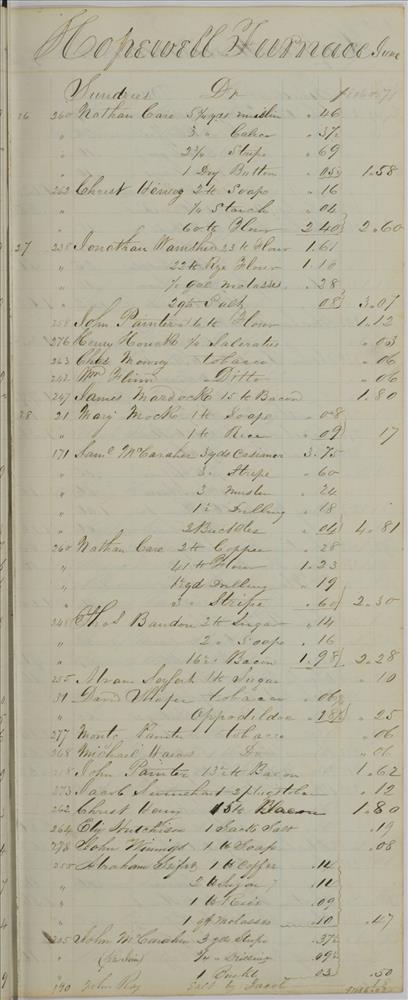 Hopewell Furnace June
Sundries Dr
26 260 Nathan Care 5 3/4 yds muslin " 46
" 3 " Calico " 37½
" 2 3/4 Stripe " 69
" 1 Doz Button " 05½ 1.58
262 Christ 2 lb Soap " 16
" ½ Starch " 04
" 60 lb Flour 2.40 2.60
27 238 Jonathan 23 lb Flour 1.61
" 22 lb Rye Flour 1.10
" ½ gal molasses " 28
" 29 lb Salt 08 3.07
258 John Painter 16 lb Flour 1.12
276 Henry Houck ½ Salerates " 03
263 Chas Mowrey tobacco " 06
242 Wm Flinn Ditto " 06
247 James Murdock 15 lb Bacon 1.80
28 21 Mary Mock 1 lb Soap " 08
" 1 lb Rice " 09 17
171 Saml McCaraher 3 yds Casimer 3.75
" 3 " Stripe " 60
" 3 muslin " 24
" 1½ Drilling " 18
" 2 Buckles " 04 4.81
260 Nathan Care 2 lb Coffee " 28
" 41 lb Flour 1.23
" 1½ yd Drilling " 19
" 3 " Stripe " 60 2.30
248 Thos Baudon 2 lb Sugar " 14
" 2 " Soap " 16
" 16½ " Bacon 1.98 2.28
255 Seyfert 1 lb Sugar " 10
31 David tobacco " 06¼
" Oppodildoc " 18¾ " 25
277 tobacco " 06
268 Michael Do " 06
218 John Painter 13½ lb Bacon 1.62
273 Jacob Swinehart 2 " 12
262 Christ 15 lb Bacon 1.80
264 Ely Hutchison 1 Sack Salt .19
278 John 1 lb Soap .08
255 Abraham 1 lb Coffee .14
" 2 lb Sugar .14
" 1 lb Rice .09
" 1 qt Molasses .10 .47
205 John McCaraher 3 yds Stripe .37½
" 3/4 " Drilling .09½
" 1 03 .50
190 John Ray Salt by Jacob